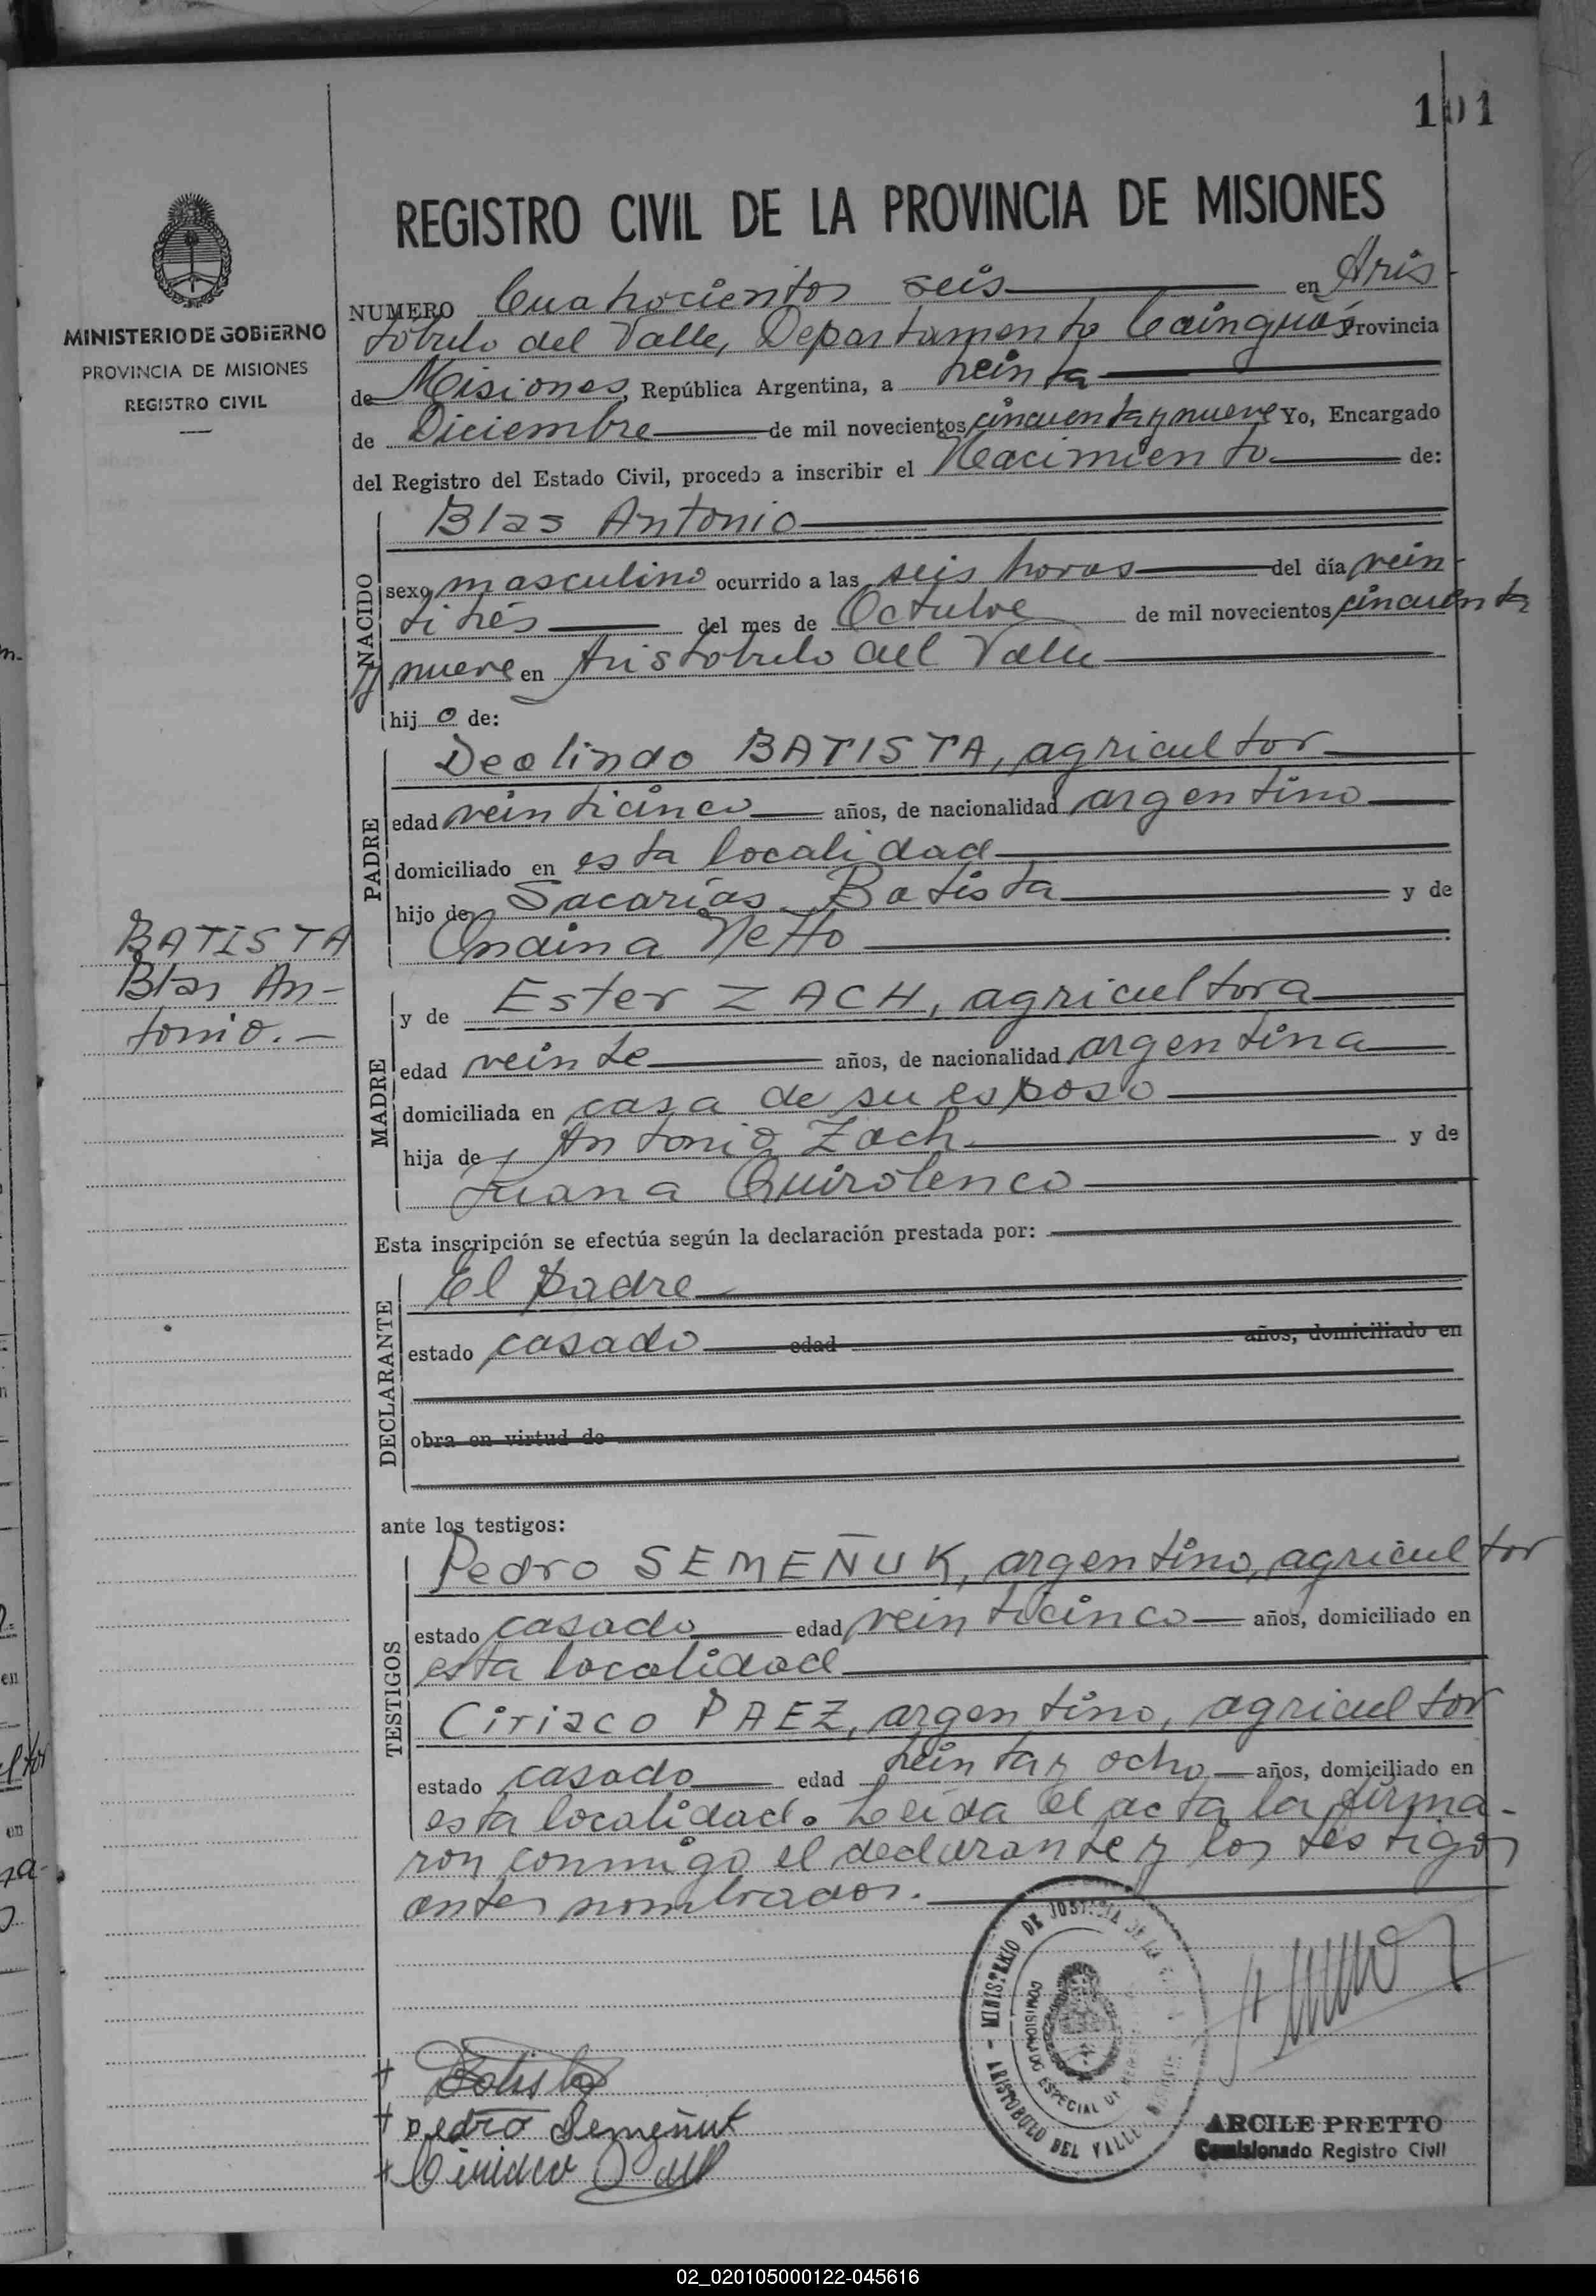 101
REGISTRO CIVIL DE LA PROVINCIA DE MISIONES
MINISTERIO DE GOBIERNO
PROVINCIA DE MISIONES
REGISTRO CIVIL
NUMERO Cuatrocientos seis en Aris
tóbulo del Valle, Departamento Cainguás Provincia
de Misiones, República Argentina, a treinta
de Diciembre de mil novecientos cincuenta y nueve Yo, Encargado
del Registro del Estado Civil, procedo a inscribir el Nacimiento de:
NACIDO
Blas Antonio
sexo masculino ocurrido a las seis horas del día vein-
titrés del mes de Octubre de mil novecientos cincuenta
y nueve en Aristobulo del Valle
hijo de:
PADRE
Deolindo BATISTA, agricultor
edad veinticinco años, de nacionalidad argentino
domiciliado en esta localidad
hijo de Sacarías Batista y de
Ondina Netto
BATISTA
Blas An-
tonio.-
MADRE
y de Ester ZACH, agricultora
edad veinte años, de nacionalidad argentina
domiciliada en casa de su esposo
hija de Antonio Zach y de
Juana Quirolenco
Esta inscripción se efectúa según la declaración prestada por:
DECLARANTE
El padre
estado casado edad años, domiciliado en
obra en virtud de
ante los testigos:
TESTIGOS
Pedro SEMEÑUK, argentino, agricultor
estado casado edad veinticinco años, domiciliado en
esta localidad
Ciriaco PAEZ, argentino, agricultor
estado casado edad treinta y ocho años, domiciliado en
esta localidad. Leída el acta la firma-
ron conmigo el declarante y los testigos
antes nombrados.
MINISTERIO DE JUSTICIA DE LA
COMISIONADO ESPECIAL DE
ARISTOBULO DEL VALLE
Batista
Pedro Semeñuk
Ciriaco
ARCILE PRETTO
Comisionado Registro Civil
02_020105000122-045616